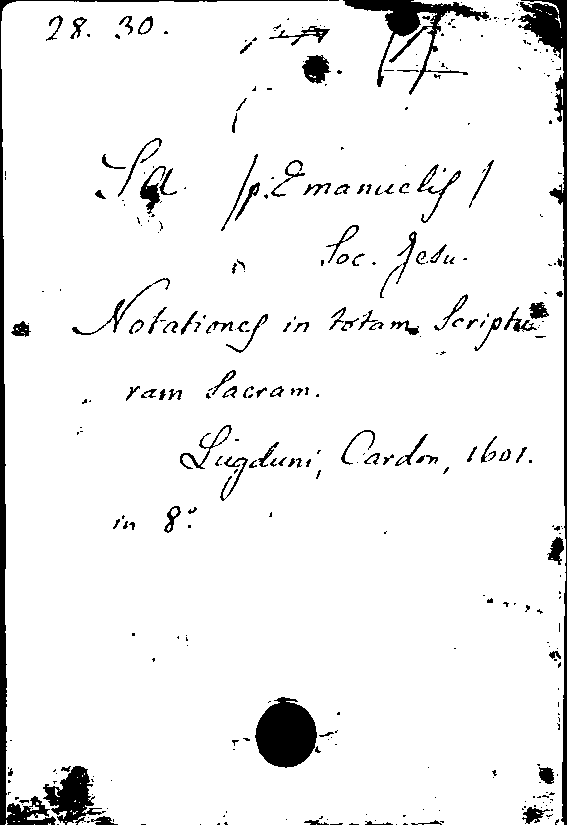 28. 30.
Sa /p. Emanuelis/
Soc. Jesu.
Notationes in totam Scriptu-
ram Sacram.
Lugduni, Cardon, 1601.
in 8º.